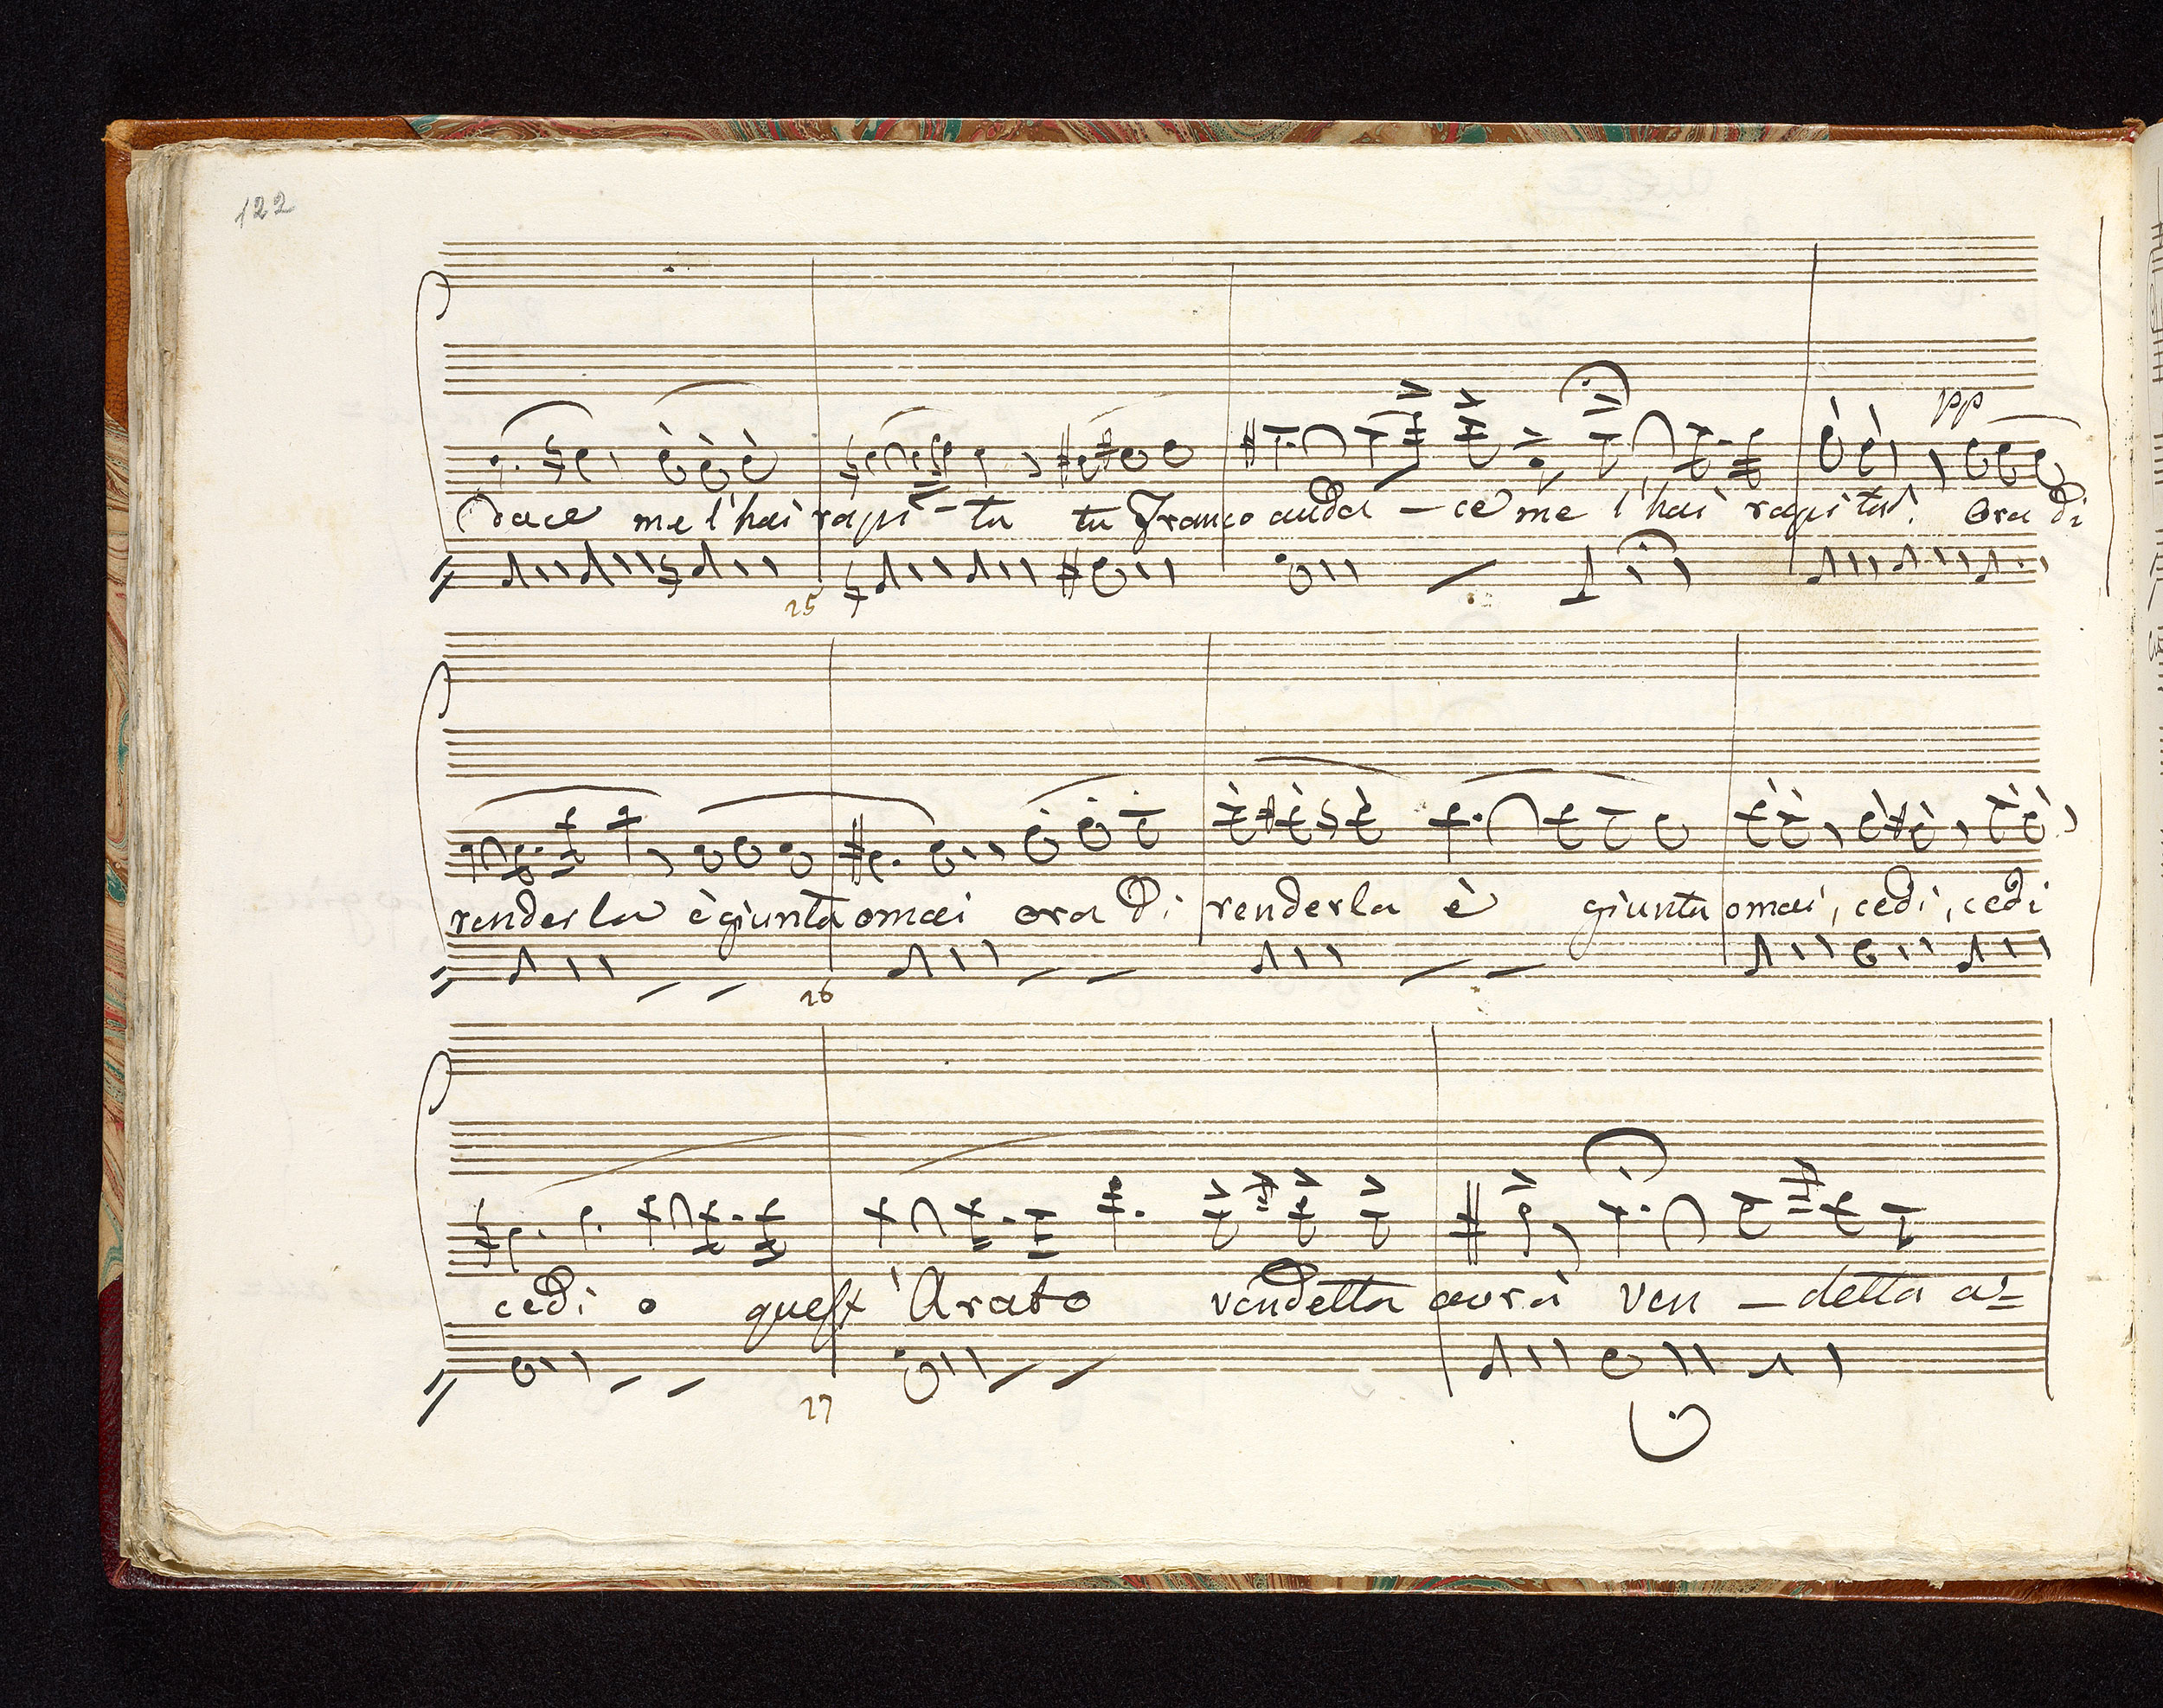 122
pp
dace me l'hai rapi - ta tu Franco auda - ce me l'hai rapita! Ora di
25
renderla è giunta omai ora di renderla è giunta omai, cedi, cedi
26
cedi o quest' Arato vendetta avrà ven - detta a=
27